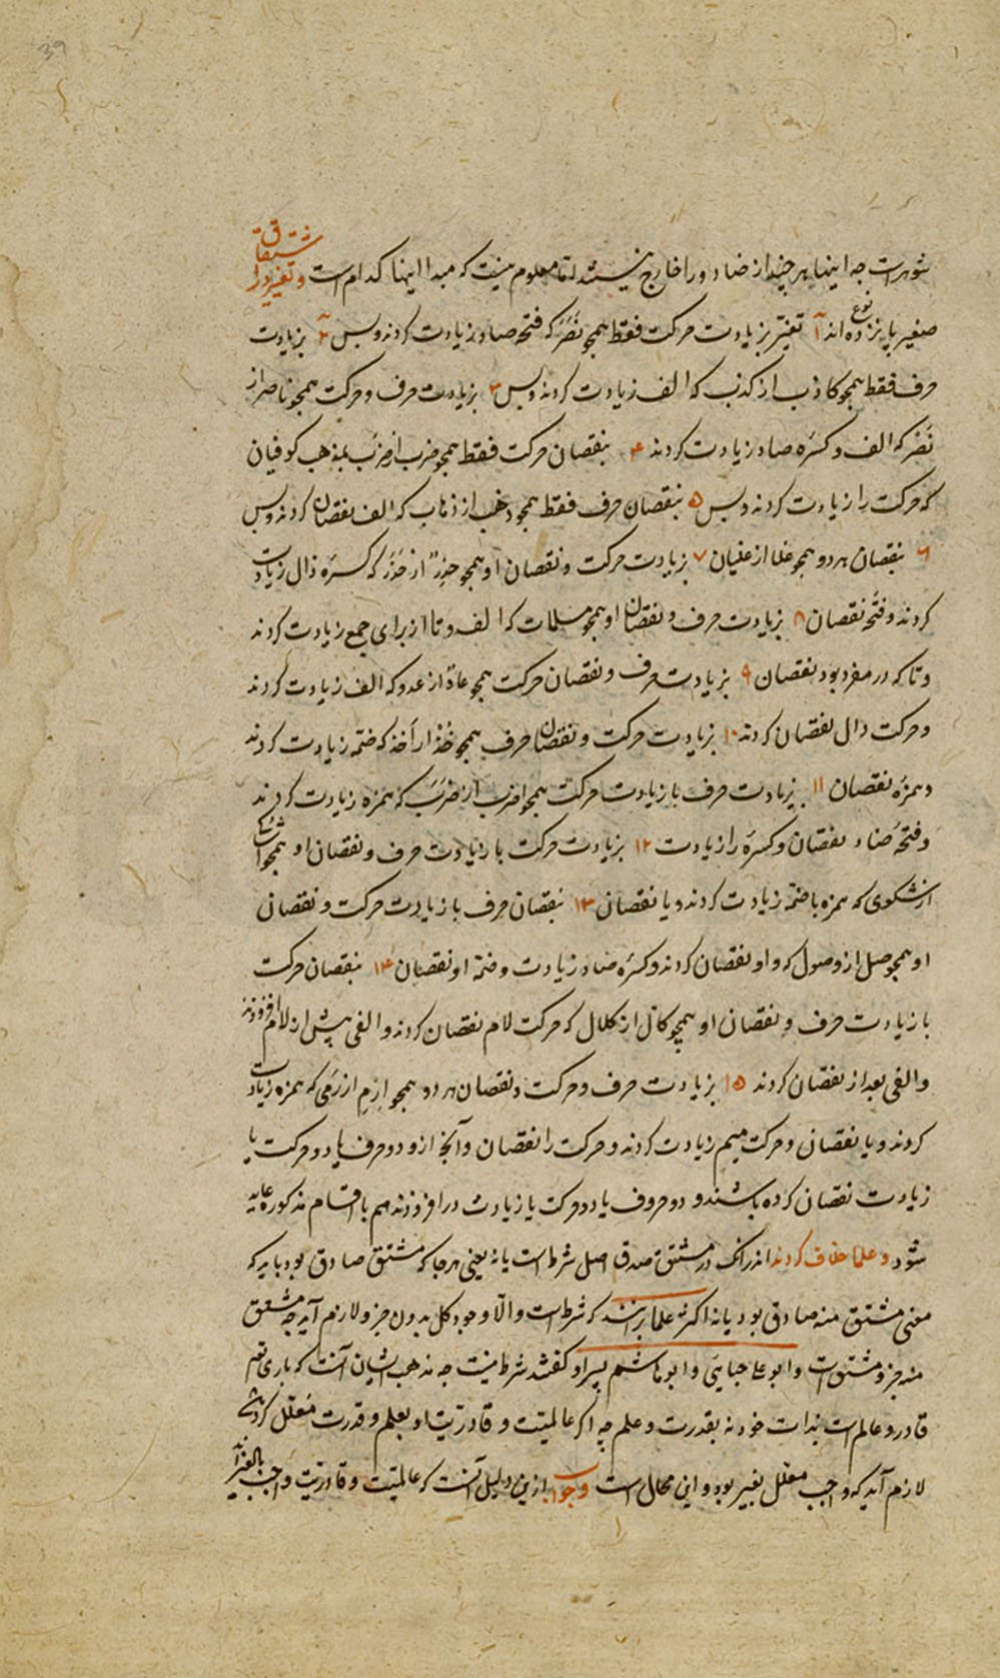 39
شوهرست چه اینها هر چند از ضاد و را خارج نیستند اما معلوم نیست که مبدا اینها کدام است و تغیر در اشتقاق
صغیر پانزده نوع اند ۱ تغیر بزیادت حرکت فقط همچو نَصَرَ که فتحه صاد زیادت کردند و بس ۲ بزیادت
حرف فقط همچو کاذب از کذب که الف زیادت کردند و بس ۳ بزیادت حرف و حرکت همچو ناصر از
نَصْر که الف و کسره صاد زیادت کردند ۴ بنقصان حرکت فقط همچو ضرب از ضرَب بمذهب کوفیان
که حرکت را زیادت کردند و بس ۵ بنقصان حرف فقط همچو ذهب از ذهاب که الف نقصان کردند و بس
۶ بنقصان هر دو همچو غلا از غلیان ۷ بزیادت حرکت و نقصان او همچو حذِرٌ از حَذَر که کسره ذال زیادت
کردند و فتحه نقصان ۸ بزیادت حرف و نقصان او همچو مسلمات که الف و تا از برای جمع زیادت کردند
و تا که در مفرد بود نقصان ۹ بزیادت حرف و نقصان حرکت همچو عادّ از عدد که الف زیادت کردند
و حرکت دال نقصان کردند ۱۰ بزیادت حرکت و نقصان حرف همچو خذ از أخذ که ضمه زیادت کردند
و همزه نقصان ۱۱ بزیادت حرف با زیادت حرکت همچو اضرب از ضرَبَ که همزه زیادت کردند
و فتحه ضاد نقصان و کسره را زیادت ۱۲ بزیادت حرکت با زیادت حرف و نقصان او همچو اشک
از شکوی که همزه با ضمه زیادت کردند و یا نقصان ۱۳ بنقصان حرف با زیادت حرکت و نقصان
او همچو صل از وصول که واو نقصان کردند و کسره صاد زیادت و ضمه او نقصان ۱۴ بنقصان حرکت
با زیادت حرف و نقصان او همچو کالّ از کلال که حرکت لام نقصان کردند و الفی پیش از لام افزودند
و الفی بعد از نقصان کردند ۱۵ بزیادت حرف و حرکت و نقصان هر دو همچو اِرمِ از رَمی که همزه زیادت
کردند و یا نقصان و حرکت میم زیادت کردند و حرکت را نقصان و آنچه ازو دو حرف یا دو حرکت یا
زیادت نقصان کرده باشند و دو حروف یا دو حرکت یا زیادت در افزودند هم باقسام مذکوره عاید
شود و علما خلاف کردند اندرانک در مشتق صدق اصل شرط است یا نه یعنی هر جا که مشتق صادق بود باید که
معنی مشتق منه صادق بود یا نه اکثر علما برانند که شرط است و الّا وجود کل بدون جز و لازم آید چه مشتق
منه جزو مشتق است و ابو علی جبایی و ابو هاشم پسر او گفتند شرط نیست چه مذهب ایشان آنست که باری تعم
قادر و عالم است بذات خود نه بقدرت و علم چه اگر عالمیت و قادریت او بعلم و قدرت معلل کردندی
لازم آید که واجب معلل بغیر بود و این محال است و جواب ازین دلیل آنست که عالمیت و قادریت واجب بالغیراند